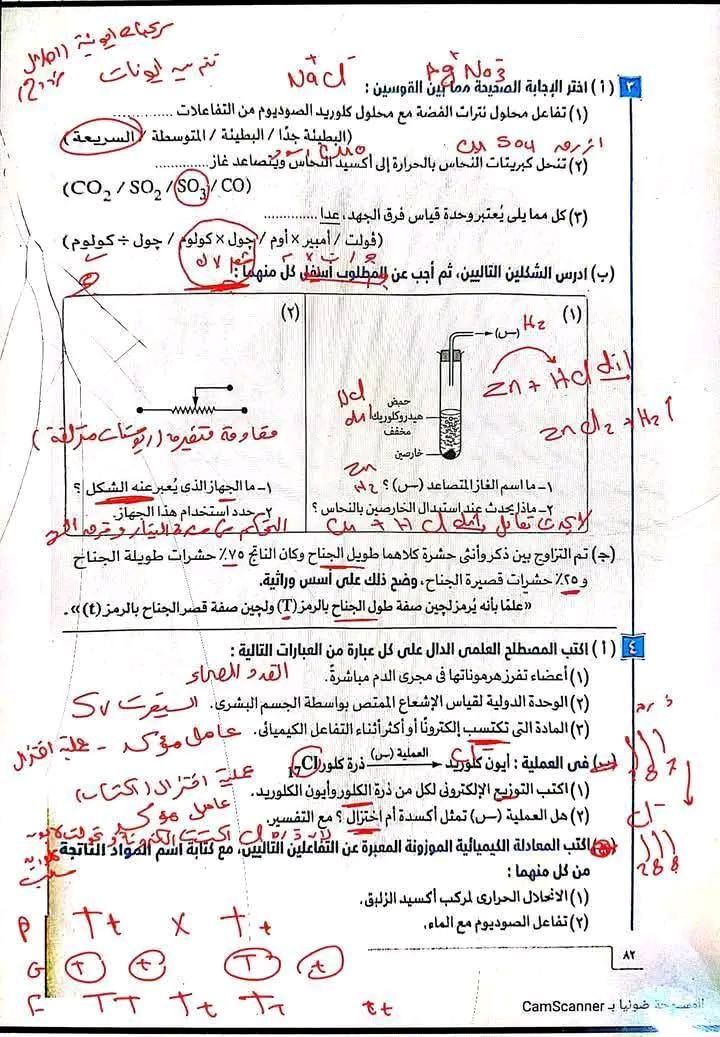 سريعة أيونية
تتم بين أيونات
Na⁺Cl⁻ Ag⁺No3⁻
٣ (أ) اختر الإجابة الصحيحة مما بين القوسين :
(١) تفاعل محلول نترات الفضة مع محلول كلوريد الصوديوم من التفاعلات ..............
(البطيئة جدًا / البطيئة / المتوسطة / السريعة)
Cu SO4 أزرق
CuO أسود
(٢) تنحل كبريتات النحاس بالحرارة إلى أكسيد النحاس ويتصاعد غاز..............
(CO₂ / SO₂ / SO₃ / CO)
(٣) كل مما يلى يُعتبر وحدة قياس فرق الجهد، عدا ..............
(ڤولت / أمبير × أوم / چول × كولوم / چول ÷ كولوم)
(ب) ادرس الشكلين التاليين، ثم أجب عن المطلوب أسفل كل منهما :
(١)
(س) H2
Zn + HCl dil
ZnCl2 + H2↑
HCl dil
حمض
هيدروكلوريك
مخفف
خارصين
Zn
١- ما اسم الغاز المتصاعد (س) ؟ H2
٢- ماذا يحدث عند استبدال الخارصين بالنحاس ؟
لا يحدث تفاعل Cu + HCl dil
(٢)
مقاومة متغيرة (ريوستات منزلقة)
١- ما الجهاز الذى يُعبر عنه الشكل ؟
٢- حدد استخدام هذا الجهاز.
التحكم فى شدة التيار وفرق الجهد
(جـ) تم التزاوج بين ذكر وأنثى حشرة كلاهما طويل الجناح وكان الناتج ٧٥٪ حشرات طويلة الجناح
و ٢٥٪ حشرات قصيرة الجناح، وضح ذلك على أسس وراثية.
«علمًا بأنه يُرمز لچين صفة طول الجناح بالرمز (T) ولچين صفة قصر الجناح بالرمز (t)».
٤ (أ) اكتب المصطلح العلمى الدال على كل عبارة من العبارات التالية :
(١) أعضاء تفرز هرموناتها فى مجرى الدم مباشرةً. الغدد الصماء
(٢) الوحدة الدولية لقياس الإشعاع الممتص بواسطة الجسم البشرى. السيفرت Sv
(٣) المادة التى تكتسب إلكترونًا أو أكثر أثناء التفاعل الكيميائى. عامل مؤكسد - عملية اختزال
(ب) فى العملية : أيون كلوريد العملية (س) ذرة كلور ₁₇Cl
Cl⁻
(١) اكتب التوزيع الإلكترونى لكل من ذرة الكلور وأيون الكلوريد.
عملية اختزال (اكتساب)
(٢) هل العملية (س) تمثل أكسدة أم اختزال ؟ مع التفسير.
عامل مؤكسد
ذرة
2 8 7
Cl⁻
2 8 8
(جـ) اكتب المعادلة الكيميائية الموزونة المعبرة عن التفاعلين التاليين، مع كتابة اسم المواد الناتجة
من كل منهما :
(١) الانحلال الحرارى لمركب أكسيد الزئبق.
(٢) تفاعل الصوديوم مع الماء.
P Tt X Tt
G T t T t
F TT Tt Tt tt
٨٢
الممسوحة ضوئيا بـ CamScanner